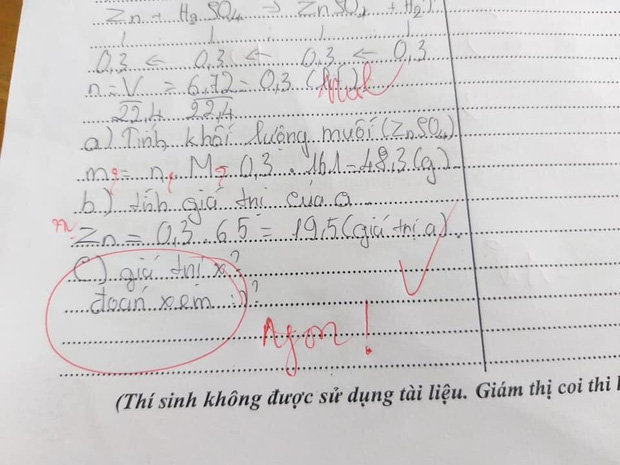 Zn + H2SO4 → ZnSO4 + H2↑
1 1 1 1
0,3 ← 0,3 ← 0,3 ← 0,3
n = V = 6,72 = 0,3 (
22,4 22,4
mol
a) Tính khối lượng muối (ZnSO4)
m = n . M = 0,3 . 161 = 48,3 (g)
b) tính giá trị của a
m Zn = 0,3 . 65 = 19,5 (giá trị a)
c) giá trị x?
đoán xem :)?
Ngon!
(Thí sinh không được sử dụng tài liệu. Giám thị coi thi